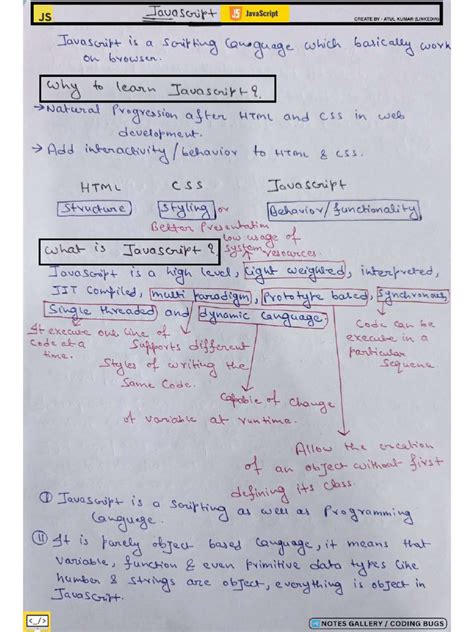 JS
Javascript
JS JavaScript
CREATE BY - ATUL KUMAR (LINKEDIN)
Javascript is a Scripting language which basically work
on browser.
Why to learn Javascript?
→ Natural Progression after HTML and CSS in web
development.
→ Add interactivity/behavior to HTML & CSS.
HTML CSS Javascript
Structure Styling or Behavior/functionality
Better Presentation
low usage of
system resources.
What is Javascript?
Javascript is a high level, light weighted, interpreted,
JIT Compiled, multi paradigm, Prototype based, Synchronous,
Single threaded and dynamic language.
It execute one line of
code at a
time.
Supports different
Styles of writing the
Same Code.
Code can be
execute in a
particular
Sequence
Capable of change
of variable at runtime.
Allow the creation
of an object without first
defining its class.
I Javascript is a Scripting as well as Programming
language.
II It is purely object based language, it means that
variable, function & even primitive data types like
number & strings are object, everything is object in
Javascript.
</> NOTES GALLERY / CODING BUGS